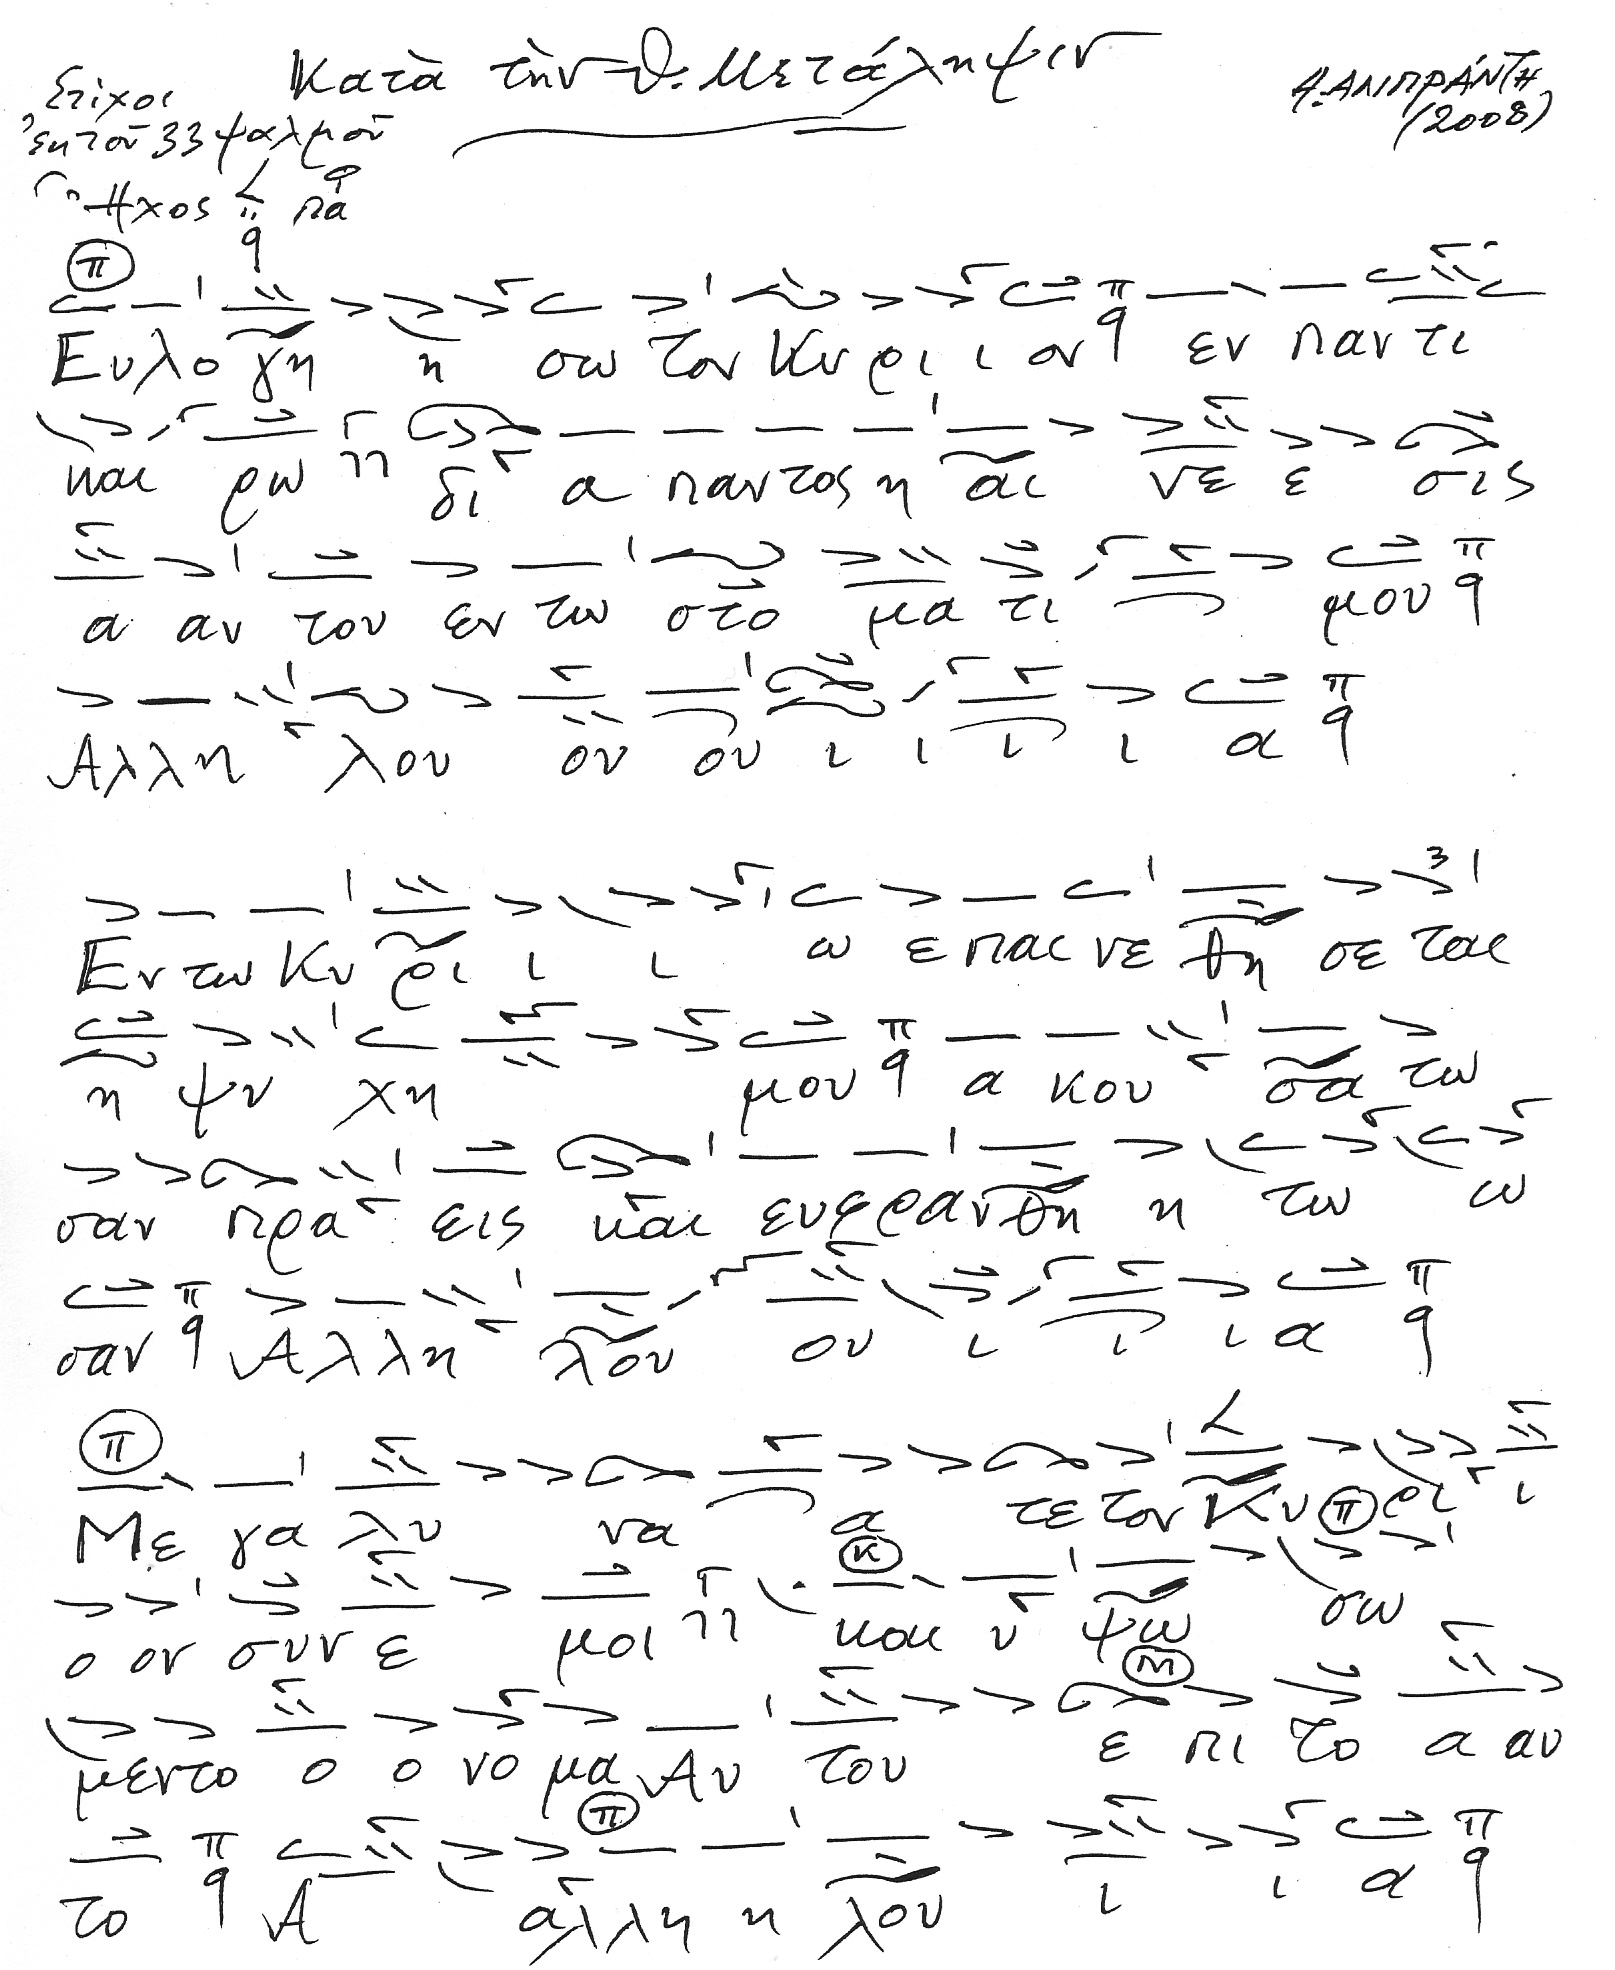 Κατὰ τὴν θ. Μετάληψιν
Α. ΑΛΙΠΡΑΝΤΗ
(2008)
Στίχοι
ἐκ τοῦ 33 ψαλμοῦ
Ἦχος π̈ πα
π
Ευλο γη η σω τον Κυ ρι ι ον π εν παν τι
και ρω δι α παντος η αι νε ε σις
α αυ του εν τω στο μα τι μου π
Αλλη λου ου ου ι ι ι ι α π
Εν τω Κυ ρι ι ι ω ε παι νε θη σε ται
η ψυ χη μου π α κου σα τω
σαν πρα εις και ευφραν θη η τω ω
σαν π Αλλη λου ου ι ι ι α π
π
Με γα λυ να α τε τον Κυ π ρι ι
κ
ο ον συν ε μοι και υ ψω σω
μ
μεν το ο ο νο μα Αυ του ε πι το α αυ
π
το π Α αλλη η λου ι ι α π